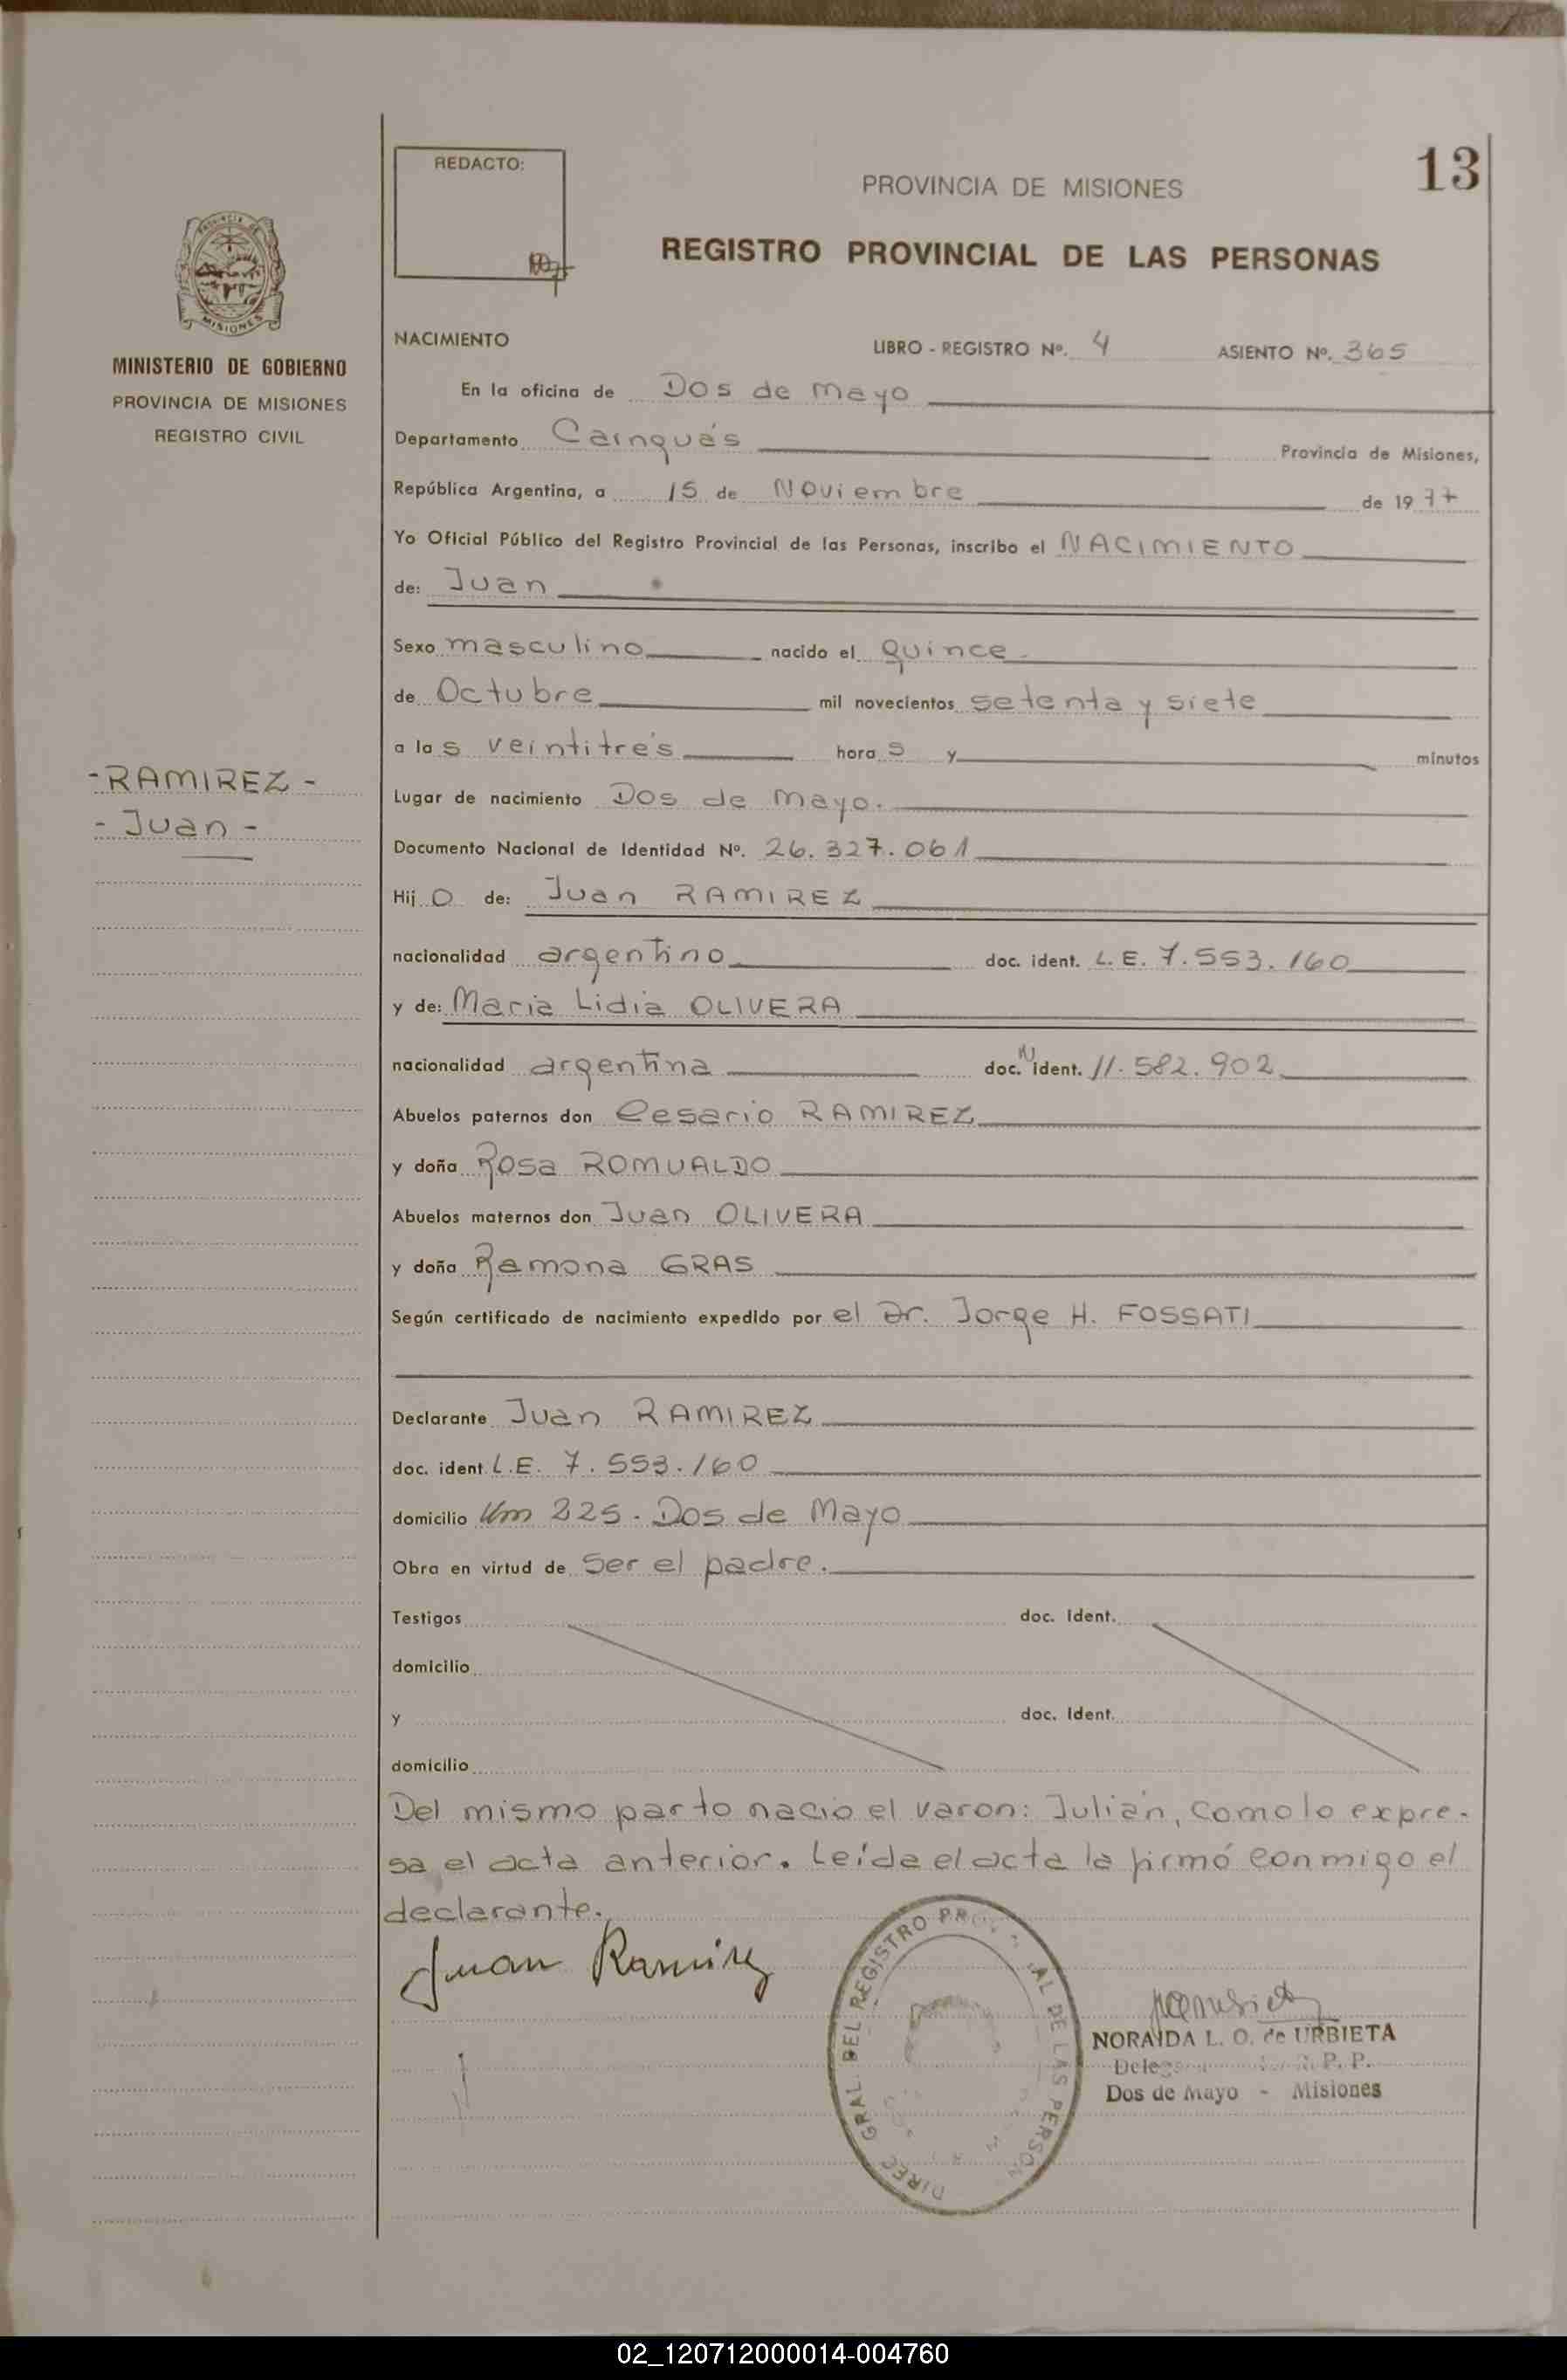 REDACTO:
13
PROVINCIA DE MISIONES
REGISTRO PROVINCIAL DE LAS PERSONAS
MISIONES
MINISTERIO DE GOBIERNO
PROVINCIA DE MISIONES
REGISTRO CIVIL
-RAMIREZ-
- Juan -
NACIMIENTO LIBRO - REGISTRO Nº. 4 ASIENTO Nº. 365
En la oficina de Dos de Mayo
Departamento Cainguás Provincia de Misiones,
República Argentina, a 15 de Noviembre de 1977
Yo Oficial Público del Registro Provincial de las Personas, inscribo el NACIMIENTO
de: Juan
Sexo masculino nacido el Quince
de Octubre mil novecientos setenta y siete
a las veintitrés horas y minutos
Lugar de nacimiento Dos de Mayo.
Documento Nacional de Identidad Nº. 26.327.061
Hijo de: Juan RAMIREZ
nacionalidad argentino doc. ident. L.E. 7.553.160
y de: Maria Lidia OLIVERA
nacionalidad argentina doc. N ident. 11.582.902
Abuelos paternos don Cesario RAMIREZ
y doña Rosa ROMUALDO
Abuelos maternos don Juan OLIVERA
y doña Ramona GRAS
Según certificado de nacimiento expedido por el Dr. Jorge H. FOSSATI
Declarante Juan RAMIREZ
doc. ident L.E. 7.553.160
domicilio Km 225 - Dos de Mayo
Obra en virtud de ser el padre.
Testigos doc. Ident.
domicilio
y doc. Ident.
domicilio
Del mismo parto nació el varon: Julián, como lo expre-
sa el acta anterior. Leída el acta la firmó conmigo el
declarante.
Juan Ramirez
DIREC GRAL. DEL REGISTRO AL DE LAS PERSON
NORAIDA L. O. de URBIETA
P. P.
Dos de Mayo - Misiones
02_120712000014-004760